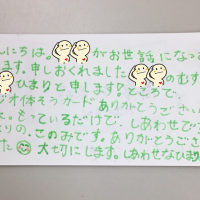 んにちは。がお世話になっ
ます。申しおくれましたのむす
ひまりと申します! ところで、
ジオ体そうカードありがとうござい
た。もっているだけで、しあわせで
りの、このみです。ありがとうござ
た 大切にします。しあわせなひまり